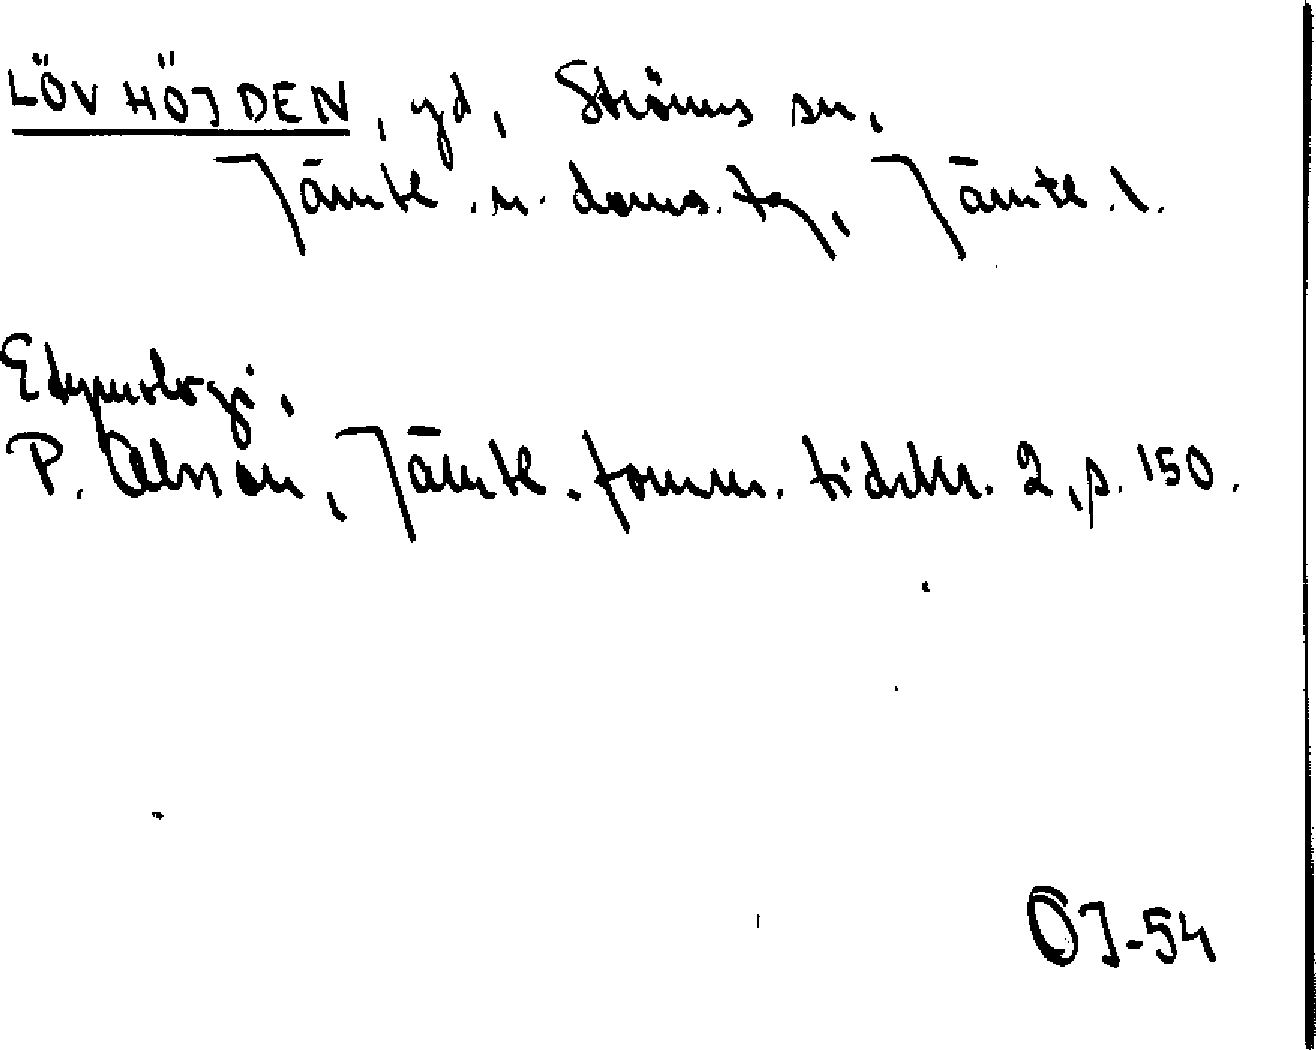 LÖVHÖJDEN, gd, Ströms sn,
Jämtl. n. doms. tg, Jämtl. l.
Etymologi.
P. Olsson, Jämtl. fornm. tidskr. 2, p. 150.
ÖJ-54